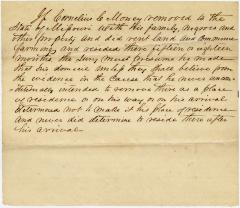 If Cornelius C Money removed to the
State of Missouri with his family, negroes and
other property and did rent land and commence
farming and resided there fifteen or eighteen
months the Jury must presume he made
that his domicil unless they shall believe from
the evidence in the Cause that he never
intended to remove there as a place
of residence or on his way or on his arrival
determined not to make it his place of residence
and never did determine to reside there after
his arrival